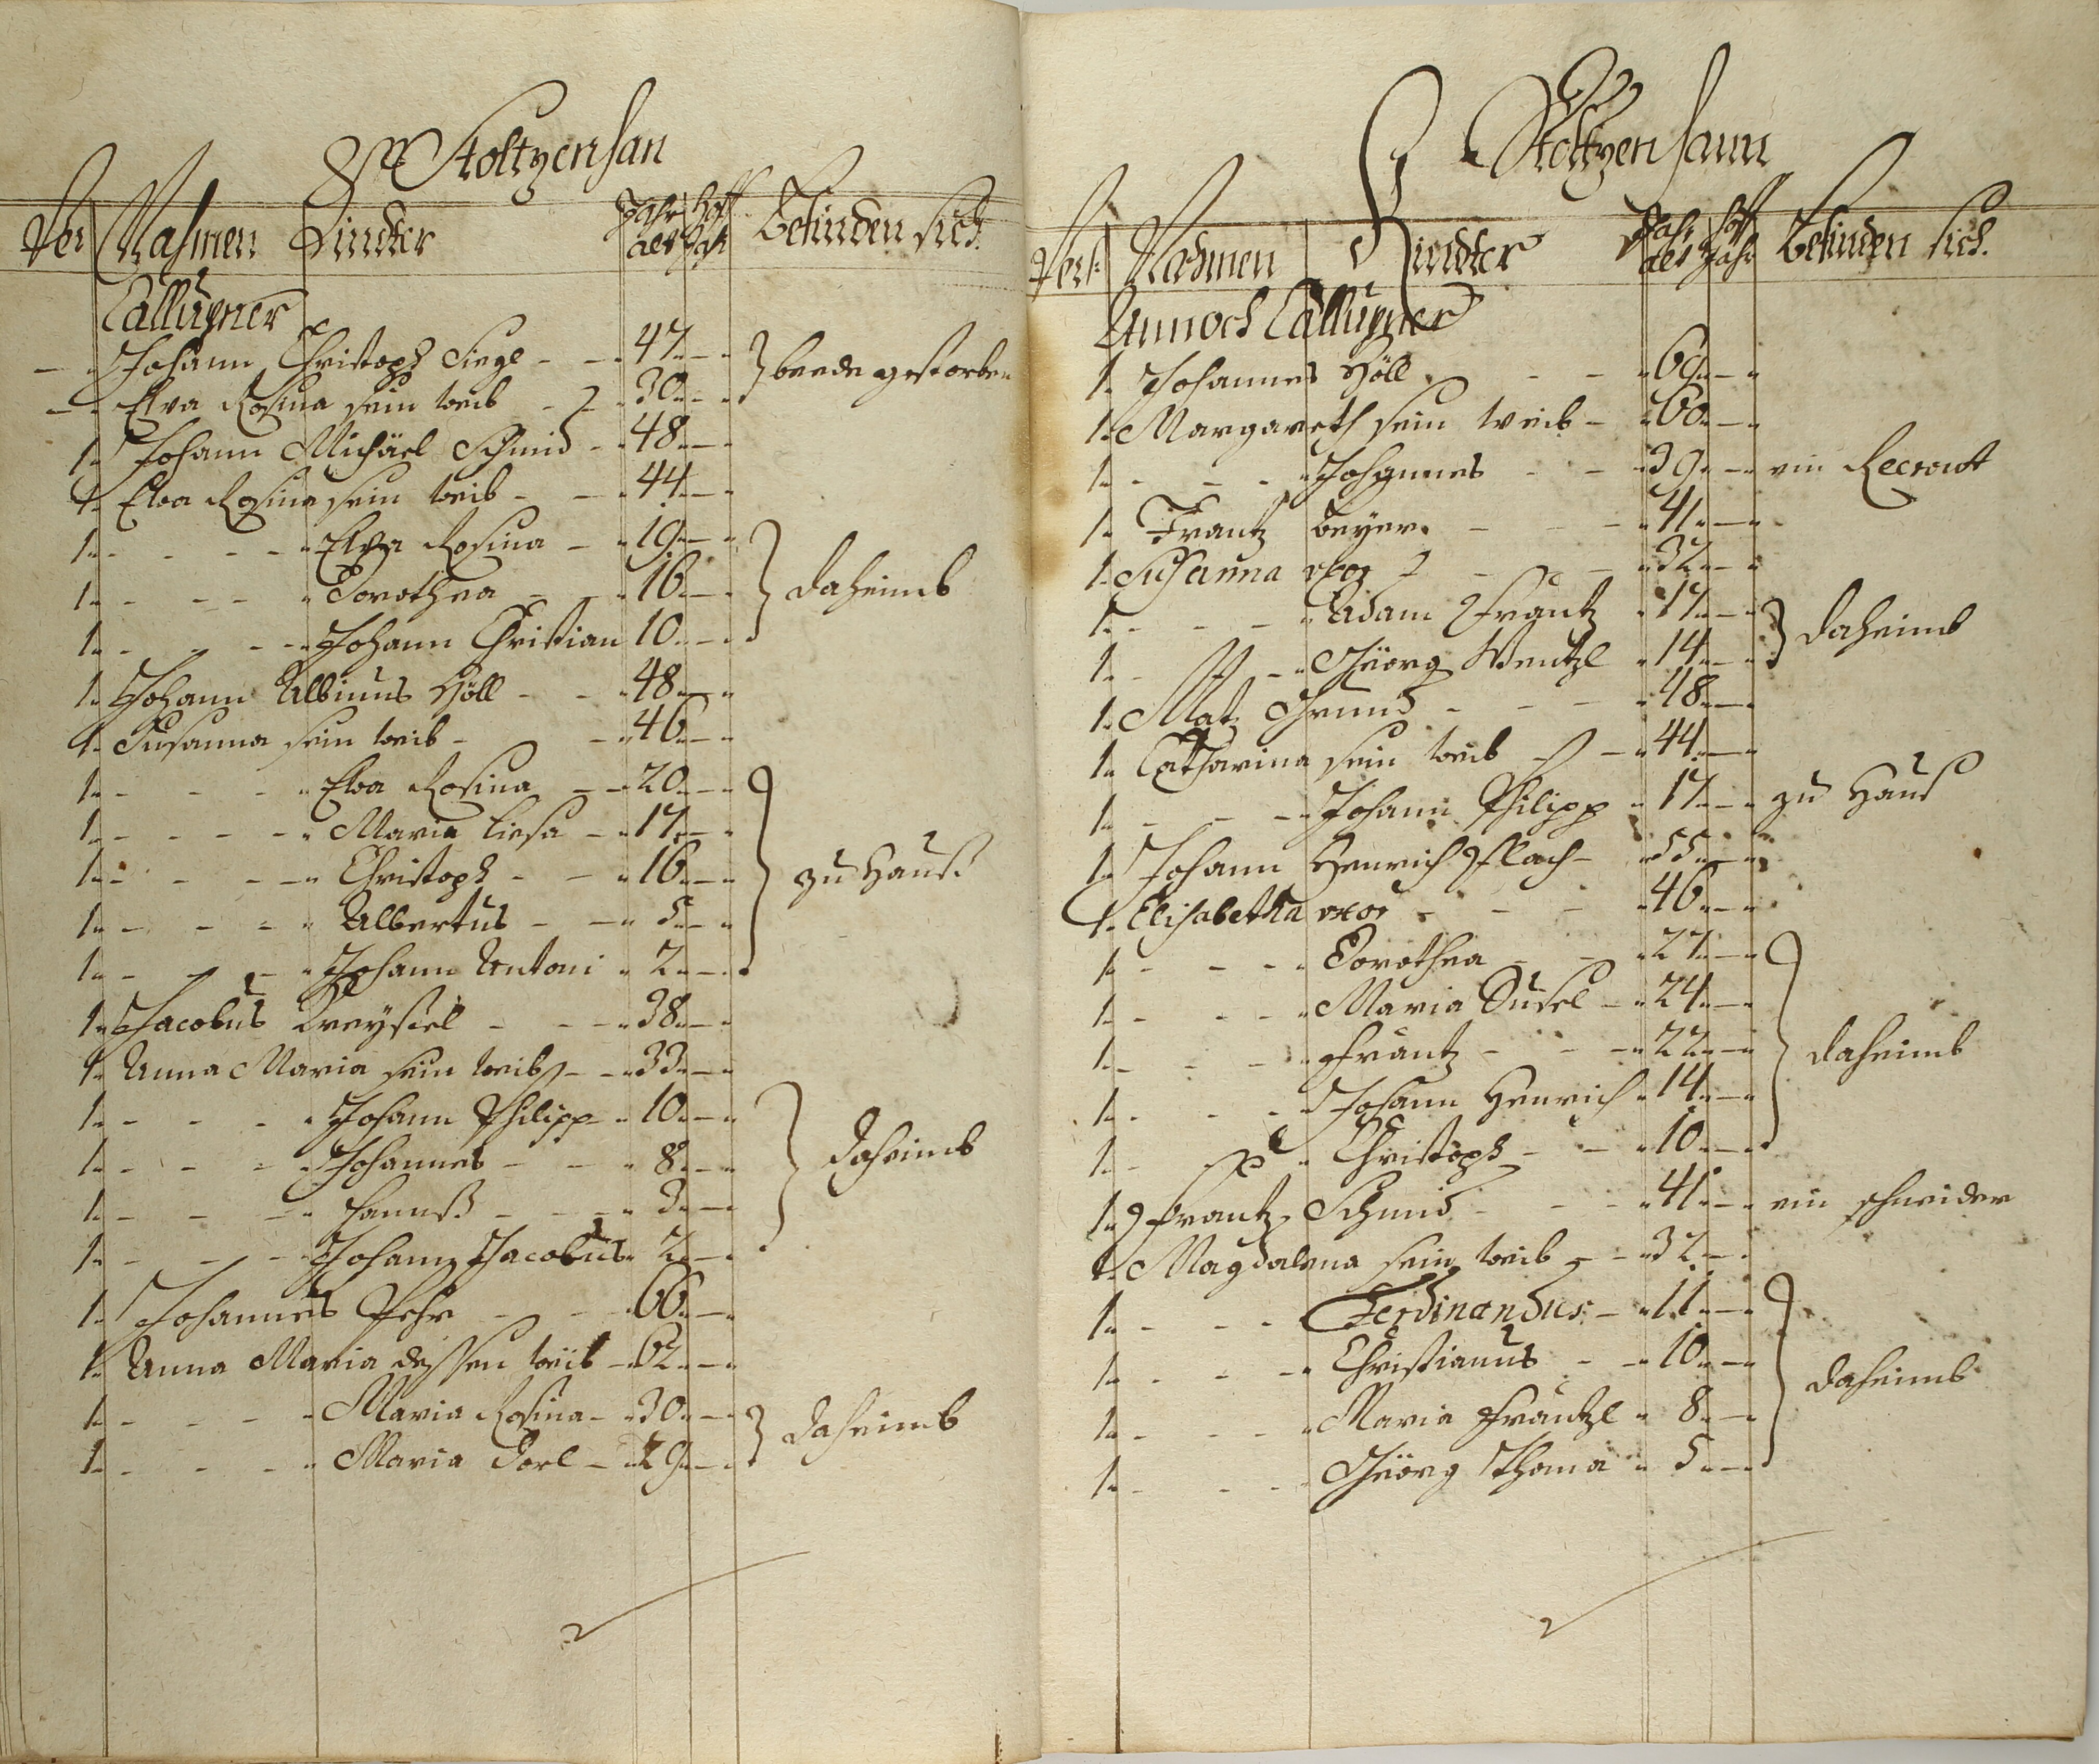 Stoltzenhan
Per Nahmen Kindter Jahr alt Hoff Jahr Befinden sich
Callupner
Johann Christoph Siegl 47 beede gestorben
Elva Rosina sein weib 30
1 Johann Michäel Schmid 48
1 Elva Rosina sein weib 44
1 Elva Rosina 19
1 Dorothea 16 daheimb
1 Johann Christian 10
1 Johann Albinus Höll 48
1 Susanna sein weib 46
1 Elva Rosina 20
1 Maria Liesa 17
1 Christoph 16 zu Hauß
1 Albertus 5
1 Johann Antoni 2
1 Jacobus Kreyssel 38
1 Anna Maria sein weib 33
1 Johann Philipp 10
1 Johannes 8 daheimb
1 Hannß 3
1 Johann Jacobus 2
1 Johannes Pehr 66
1 Anna Maria dessen weib 62
1 Maria Rosina 30 daheimb
1 Maria Dorl 29
Stoltzenhann
Pers: Nahmen Kindter Jahr alt Hoff Jahr Befinden sich.
Annoch Callupner
1 Johannes Höll 69
1 Margareth sein weib 60
1 Johannes 39 ein Recrout
1 Frantz Beyer 41
1 Susanna uxor 32
1 Adam Frantz 17 daheimb
1 Geörg Wentzl 14
1 Matz Grund 48
1 Catharina sein weib 44
1 Johann Philipp 17 zu Hauß
1 Johann Henrich Flach 55
1 Elisabetha uxor 46
1 Dorothea 27
1 Maria Susel 24
1 Frantz 22 daheimb
1 Johann Henrich 14
1 Christoph 10
1 Frantz Schmid 41 ein schneider
1 Magdalena sein weib 32
1 Ferdinandus 11
1 Christianus 10 daheimb
1 Maria Fräntzl 8
1 Geörg Thoma 5